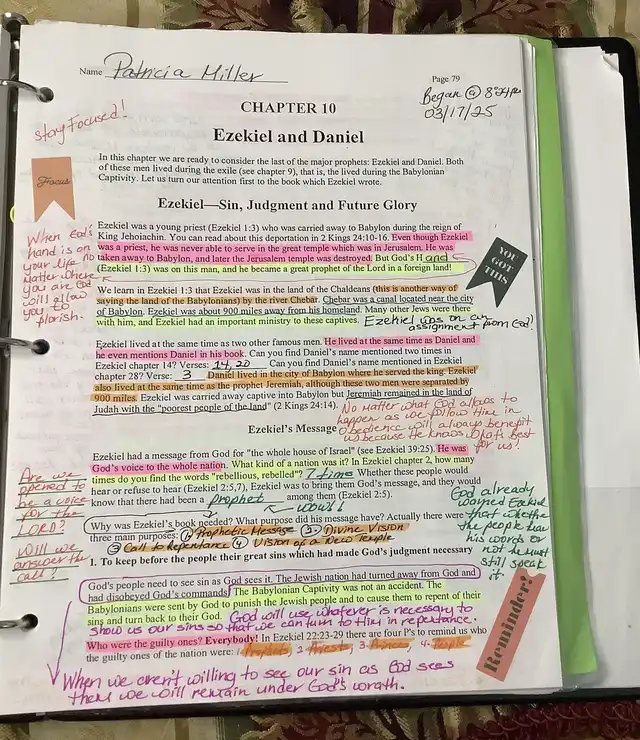 Name Patricia Miller
Page 79
Began @ 8:24pm
03/17/25
stay Focused!
CHAPTER 10
Ezekiel and Daniel
In this chapter we are ready to consider the last of the major prophets: Ezekiel and Daniel. Both
of these men lived during the exile (see chapter 9), that is, the lived during the Babylonian
Captivity. Let us turn our attention first to the book which Ezekiel wrote.
Focus
Ezekiel—Sin, Judgment and Future Glory
Ezekiel was a young priest (Ezekiel 1:3) who was carried away to Babylon during the reign of
King Jehoiachin. You can read about this deportation in 2 Kings 24:10-16. Even though Ezekiel
was a priest, he was never able to serve in the great temple which was in Jerusalem. He was
taken away to Babylon, and later the Jerusalem temple was destroyed. But God's H and
(Ezekiel 1:3) was on this man, and he became a great prophet of the Lord in a foreign land!
When God's
hand is on
your life no
matter where
you are God
will allow
you to
florish.
YOU
GOT
THIS
We learn in Ezekiel 1:3 that Ezekiel was in the land of the Chaldeans (this is another way of
saying the land of the Babylonians) by the river Chebar. Chebar was a canal located near the city
of Babylon. Ezekiel was about 900 miles away from his homeland. Many other Jews were there
with him, and Ezekiel had an important ministry to these captives. Ezekiel was on an
assignment from God!
Ezekiel lived at the same time as two other famous men. He lived at the same time as Daniel and
he even mentions Daniel in his book. Can you find Daniel's name mentioned two times in
Ezekiel chapter 14? Verses: 14, 20 Can you find Daniel's name mentioned in Ezekiel
chapter 28? Verse: 3 Daniel lived in the city of Babylon where he served the king. Ezekiel
also lived at the same time as the prophet Jeremiah, although these two men were separated by
900 miles. Ezekiel was carried away captive into Babylon but Jeremiah remained in the land of
Judah with the "poorest people of the land" (2 Kings 24:14).
No matter what God allows to
happen as we follow Him in
obedience will always benefit
us because He knows what's best
for us!
Ezekiel's Message
Ezekiel had a message from God for "the whole house of Israel" (see Ezekiel 39:25). He was
God's voice to the whole nation. What kind of a nation was it? In Ezekiel chapter 2, how many
times do you find the words "rebellious, rebelled"? 7 time Whether these people would
hear or refuse to hear (Ezekiel 2:5,7), Ezekiel was to bring them God's message, and they would
know that there had been a prophet among them (Ezekiel 2:5).
wow!
Are we
opened to
be a voice
for the
LORD?
will we
answer the
call?
God already
warned Ezekiel
that whether
the people hear
his words or
not he must
still speak
it.
Why was Ezekiel's book needed? What purpose did his message have? Actually there were
three main purposes: 1 Prophetic Message 2 Divine Vision
3 Call to Repentance 4 Vision of a New Temple
1. To keep before the people their great sins which had made God's judgment necessary
God's people need to see sin as God sees it. The Jewish nation had turned away from God and
had disobeyed God's commands. The Babylonian Captivity was not an accident. The
Babylonians were sent by God to punish the Jewish people and to cause them to repent of their
sins and turn back to their God. God will use whatever is necessary to
show us our sins so that we can turn to Him in repentance.
Who were the guilty ones? Everybody! In Ezekiel 22:23-29 there are four P's to remind us who
the guilty ones of the nation were: 1-Prophets, 2 Priest, 3-Prince, 4-People
Reminder!
When we aren't willing to see our sin as God sees
them we will remain under God's wrath.